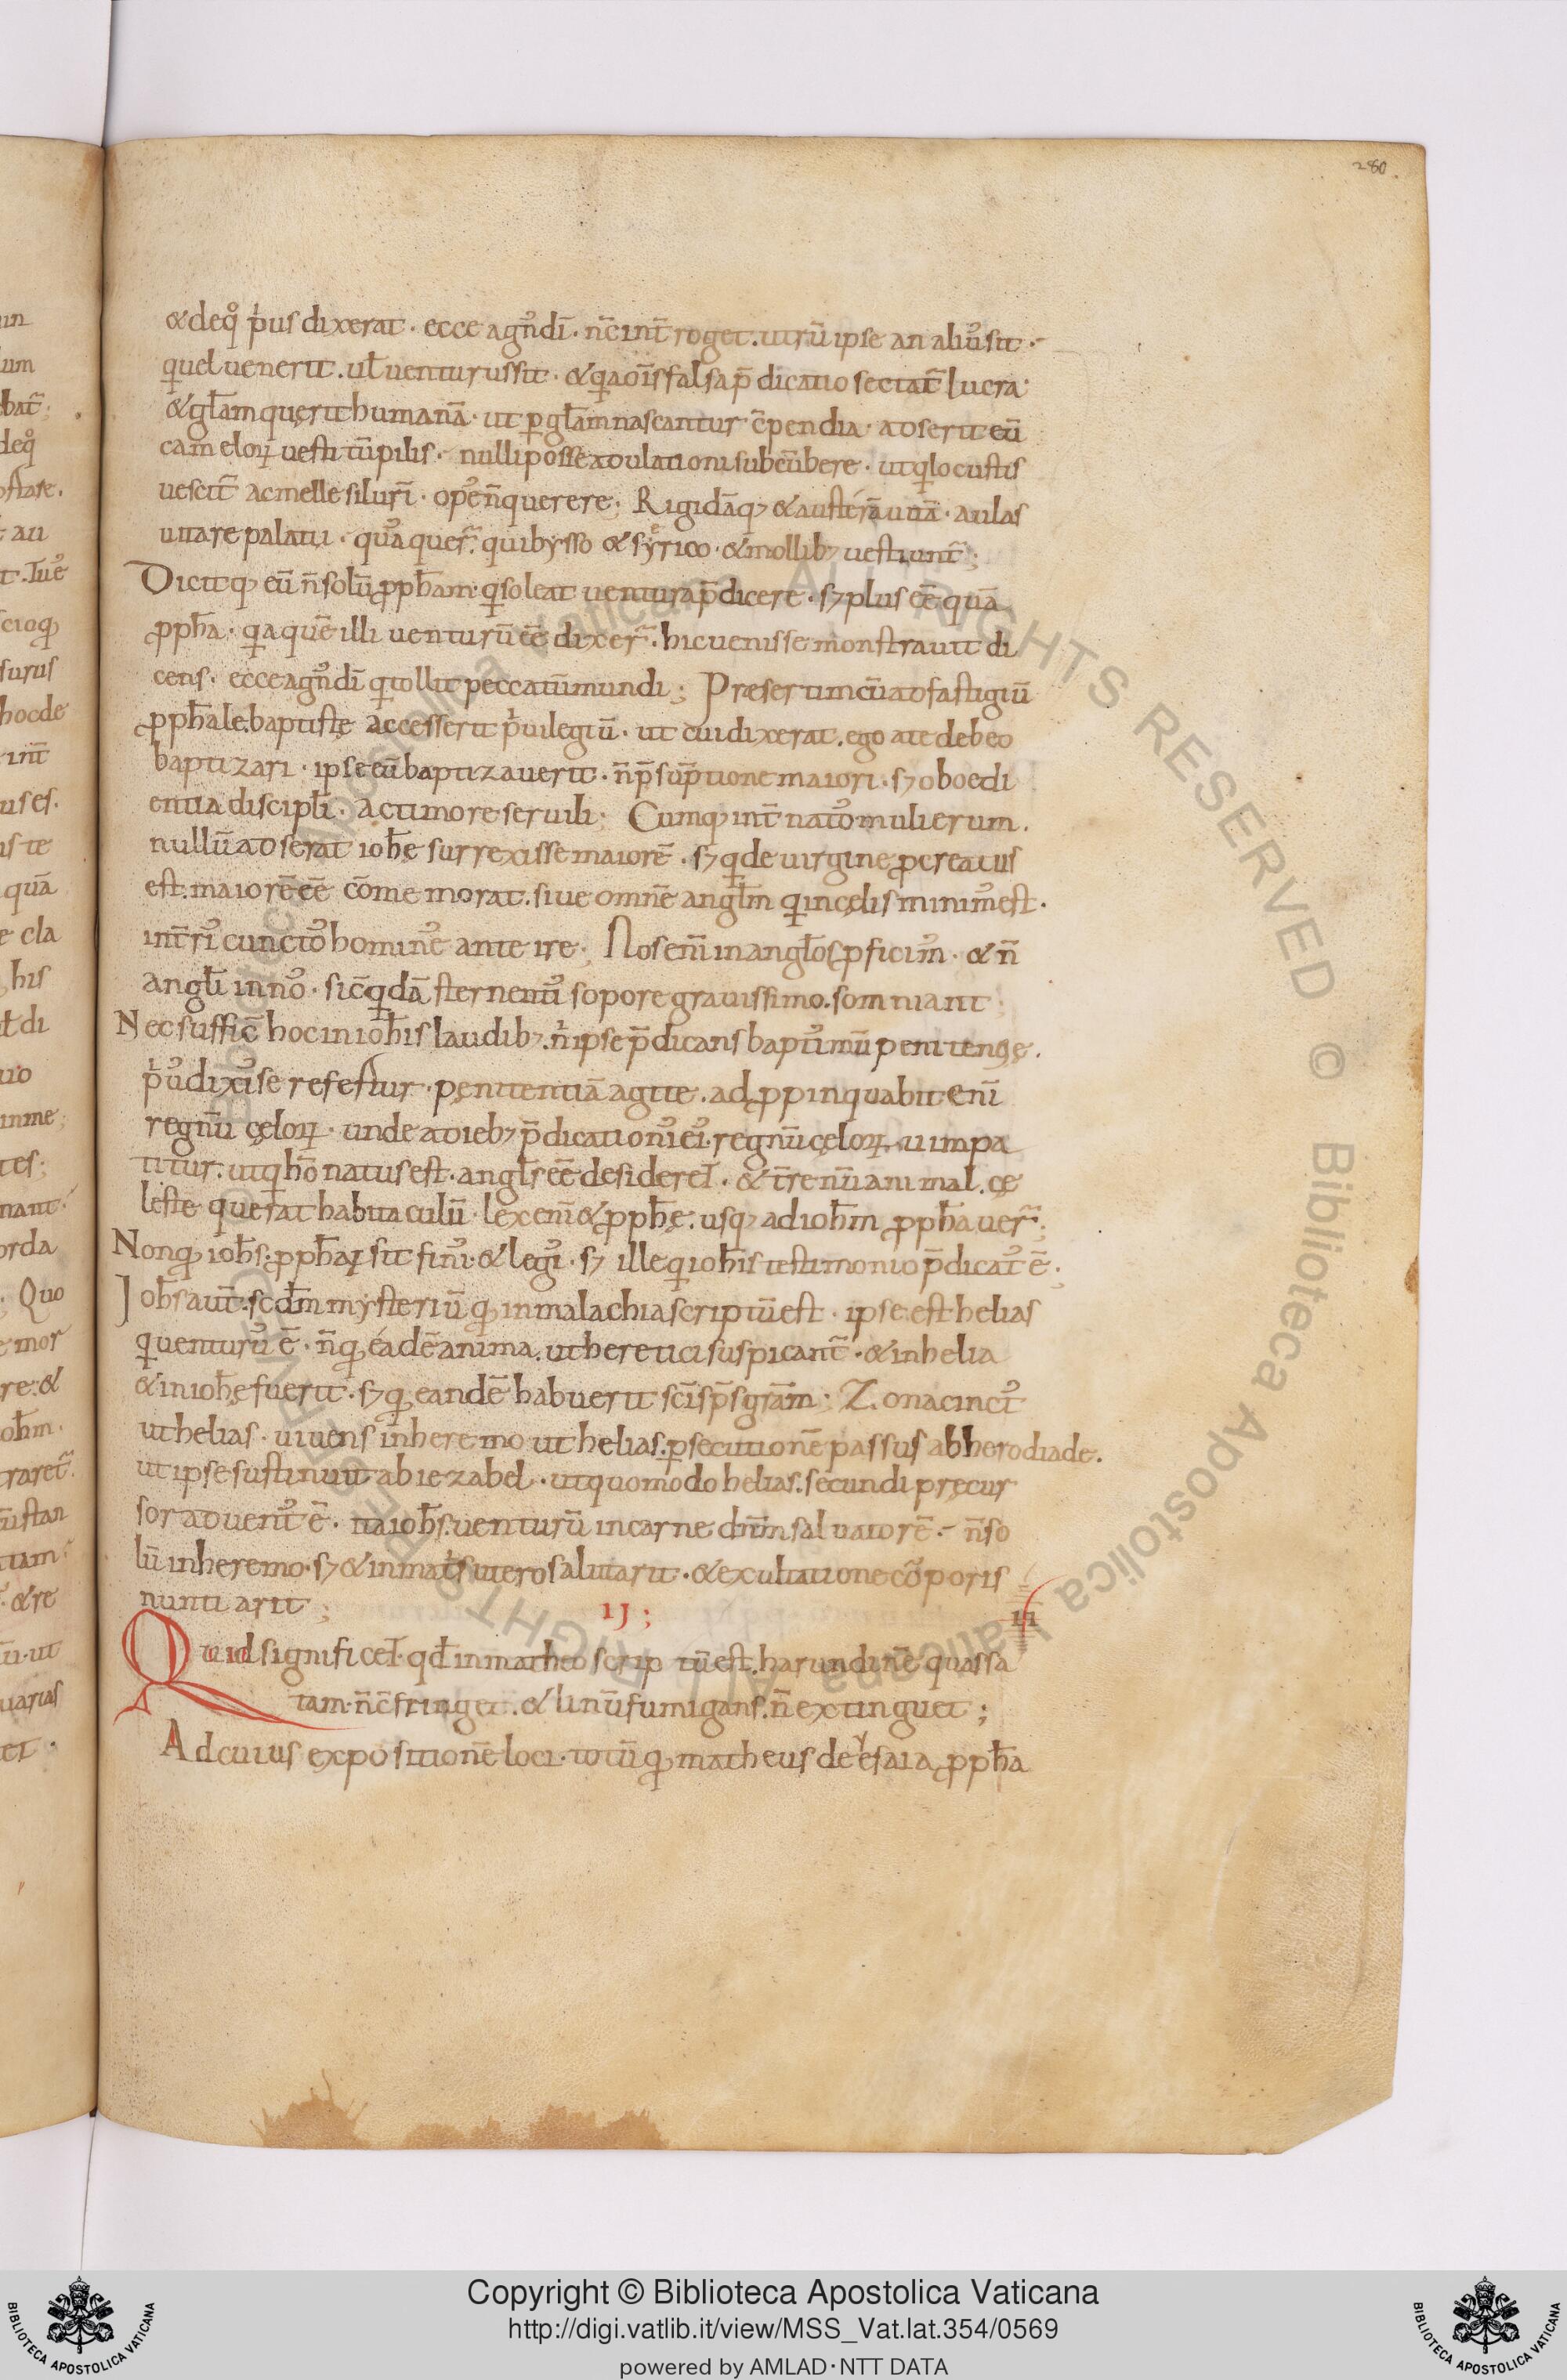 280
& deq̊ p͛us dixerat · ecce agn᷒ dī · n̄c int̄roget . utrū ipse an aliu᷒ sit ·
q͛ uel uenerit . ul̄ uenturus sit · & q͛a oīs falsa p̄dicatio sectat᷑ lucra ·
& gl̄am quęrit humanā · ut ꝑ gl̄am nascantur c̄pendia · adserit eū
camelorꝝ uestitū pilis · nulli posse adulationi subcūbere · ut q͛ locustis
uescit᷑ ac melle siluri᷑ · ope᷒ n̄ querere · Rigidāq; & austérā uitā · aulas
uitare palatii · quā quer᷑ qui bysso & syrico · & mollib; uestiunt᷑ ;
Dicitq; eū n̄ solū ꝓph̄am · q͛ soleat uentura p̄dicere · s; plus ēē quā
ꝓph̄a · q͛a quē illi uenturū ēē dixer᷑ . hic uenisse monstrauit di
cens · ecce agn᷒ dī q͛ tollit peccatū mundi ; Præsertim cū ad fastigiū
ꝓph̄ale . baptistę accesserit p͛uilegiū · ut cui dixerat . ego a te debeo
baptizari · ipse eū baptizauerit . n̄ p̄sūptione maiori · s; oboedi
entia discipl̄i · ac timore seruili ; Cumq; int̄ nato᷒ mulierum .
nullū adserat ioh̄e surrexisse maiorē . s; q͛ de uirgine ꝓcreatus
est . maiorē ēē cōmemorat . siue omnē angl̄m q͛ in cęlis minim᷒ est .
in t̄ri᷒ cuncto᷒ homine᷒ anteire ; Nos enī in angl̄os ꝓficim᷒ · & n̄
angl̄i in no᷒ · sic̄ q͛dā sternente᷒ sopore grauissimo . somniant ;
Nec suffic̄ hoc in ioh̄is laudib; . n͛ ipse p̄dicans bapti᷒mū penitentię .
p͛u᷒ dixi᷒se refertur · pęnitentiā agite . adꝓpinquabit enī
regnū cęlorꝝ · unde a dieb; p̄dicationi᷒ ei᷒ . regnū cęlorꝝ . uim pa
titur . ut q͛ hō natus est . angl̄s ēē desideret̄ . & t̄renū animal . cę
leste querat habitaculū · lex enī & ꝓph̄ę . usq; ad ioh̄m ꝓph̄auer᷑ ;
Non q; ioh̄s . ꝓph̄aꝝ sit fini᷒ . & legi᷒ · s; ille q͛ ioh̄is testimonio p̄dicat᷒ ē ·
Ioh̄s aut̄ . scd̄m mysteriū q; in malachia scriptū est · ipse est helias
q͛ uenturu᷒ ē · n̄ q; éadē anima . ut heretici suspicant᷑ · & in helia
& in ioh̄ę fuerit · s; q; eandē habuerit sc̄i sp̄s gr̄am ; Zona cinct᷒
ut helias · uiuens in heremo ut helias . ꝑsecutionē passus ab herodiade .
ut ipse sustinuit ab iezabel · ut quomodo helias . secundi pręcur
sor aduent᷒ ē · ita ioh̄s . uenturū in carne dn̄m saluatorē · n̄ so
lū in heremo · s; & in mat͛s utero salutarit · & exultatione cōporis
nuntiarit ; IJ ; II
Quid significet̄ · qd̄ in matheo scriptū est . harundinē quassa
tam · n̄ c̄fringet . & linū fumigans . n̄ extinguet ;
Ad cuius expositionē loci · totū q; matheus de esaia ꝓph̄a
Copyright © Biblioteca Apostolica Vaticana
http://digi.vatlib.it/view/MSS_Vat.lat.354/0569
powered by AMLAD·NTT DATA
BIBLIOTECA APOSTOLICA VATICANA
BIBLIOTECA APOSTOLICA VATICANA